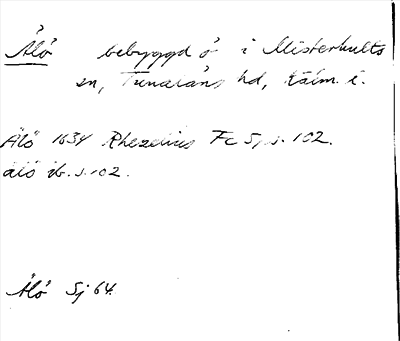 Älö bebyggd ö i Misterhults
sn, Tunaläns hd, Kalm. l.
Älö 1634 Rhezelius Fc 5, s. 102.
älö ib. s. 102.
Älö Sj 64.